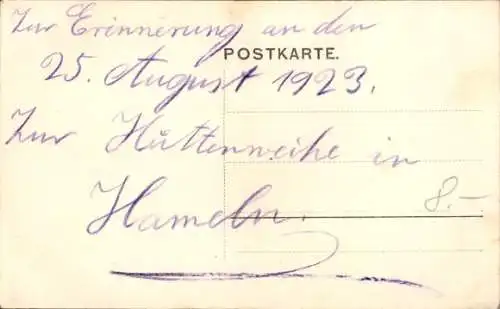 Zur Erinnerung an den
POSTKARTE.
25. August 1923.
Zur Hüttenweihe in
Hameln.
8.-